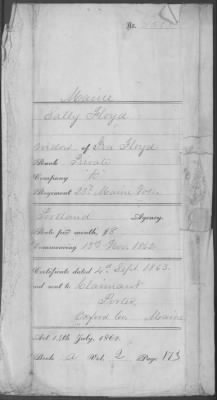 No.
Maine
Sally Floyd
widow of Ira Floyd
Rank Private
Company "K"
Regiment 23d Maine Vols
Portland Agency.
Rate per month, $8
Commencing 13th Nov. 1862
Certificate dated 4th Sept 1863.
and sent to Claimant
Porter
Oxford Co. Maine
Act 14th July, 1862.
Book A Vol. 2 Page 173